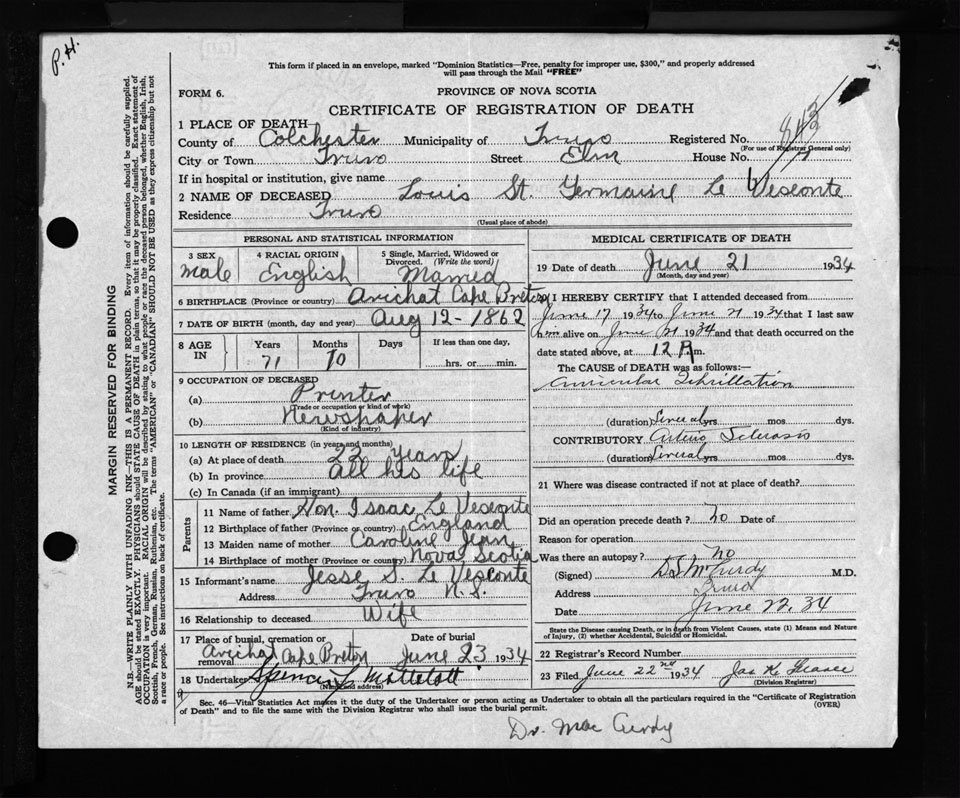 P. H.
This form if placed in an envelope, marked "Dominion Statistics—Free, penalty for improper use, $300," and properly addressed
will pass through the Mail "FREE"
FORM 6.
PROVINCE OF NOVA SCOTIA
CERTIFICATE OF REGISTRATION OF DEATH
1 PLACE OF DEATH
County of Colchester Municipality of Truro Registered No. 843
(For use of Registrar General only)
City or Town Truro Street Elm House No.
If in hospital or institution, give name
2 NAME OF DECEASED Louis St. Germaine Le Vesconte
Residence Truro
(Usual place of abode)
PERSONAL AND STATISTICAL INFORMATION
3 SEX 4 RACIAL ORIGIN 5 Single, Married, Widowed or
Divorced. (Write the word)
Male English Married
6 BIRTHPLACE (Province or country) Arichat Cape Breton
7 DATE OF BIRTH (month, day and year) Aug 12 - 1862
8 AGE IN Years Months Days If less than one day,
71 10 hrs. or min.
9 OCCUPATION OF DECEASED
(a) Printer
(Trade or occupation or kind of work)
(b) Newspaper
(Kind of industry)
10 LENGTH OF RESIDENCE (in years and months)
(a) At place of death 22 years
(b) In province all his life
(c) In Canada (if an immigrant)
Parents
11 Name of father Hon. Isaac Le Vesconte
12 Birthplace of father (Province or country) England
13 Maiden name of mother Caroline Jean
14 Birthplace of mother (Province or country) Nova Scotia
15 Informant's name Jesse S. Le Vesconte
Address Truro N. S.
16 Relationship to deceased Wife
17 Place of burial, cremation or removal Date of burial
Arichat Cape Breton June 23 1934
18 Undertaker Spencer
(Name and address)
MEDICAL CERTIFICATE OF DEATH
19 Date of death June 21 1934
(Month, day and year)
I HEREBY CERTIFY that I attended deceased from
June 17 1934 to June 21 1934 that I last saw
him alive on June 21 1934 and that death occurred on
the date stated above, at 12 P.m.
The CAUSE of DEATH was as follows:—
Auricular Fibrillation
(duration) Several yrs mos dys.
CONTRIBUTORY Arterio Sclerosis
(duration) Several yrs mos dys.
21 Where was disease contracted if not at place of death?
Did an operation precede death? no Date of
Reason for operation
Was there an autopsy? no
(Signed) D S McCurdy M.D.
Address Truro
Date June 22, 34
State the Disease causing Death, or in death from Violent Causes, state (1) Means and Nature
of Injury, (2) whether Accidental, Suicidal or Homicidal.
22 Registrar's Record Number
23 Filed June 22nd 1934 Jas K. Fraser
(Division Registrar)
Sec. 46—Vital Statistics Act makes it the duty of the Undertaker or person acting as Undertaker to obtain all the particulars required in the "Certificate of Registration
of Death" and to file the same with the Division Registrar who shall issue the burial permit.
(OVER)
Dr. Mac Curdy
MARGIN RESERVED FOR BINDING
N.B.—WRITE PLAINLY WITH UNFADING INK—THIS IS A PERMANENT RECORD. Every item of information should be carefully supplied.
AGE should be stated EXACTLY. PHYSICIANS should STATE CAUSE OF DEATH in plain terms, so that it may be properly classified. Exact statement of
OCCUPATION is very important. RACIAL ORIGIN will be described by stating to what people or race the deceased person belonged, whether English, Irish,
Scottish, French, German, Russian, Ruthenian, etc. The terms "AMERICAN" or "CANADIAN" SHOULD NOT BE USED as they express citizenship but not
a race or people. See instructions on back of certificate.